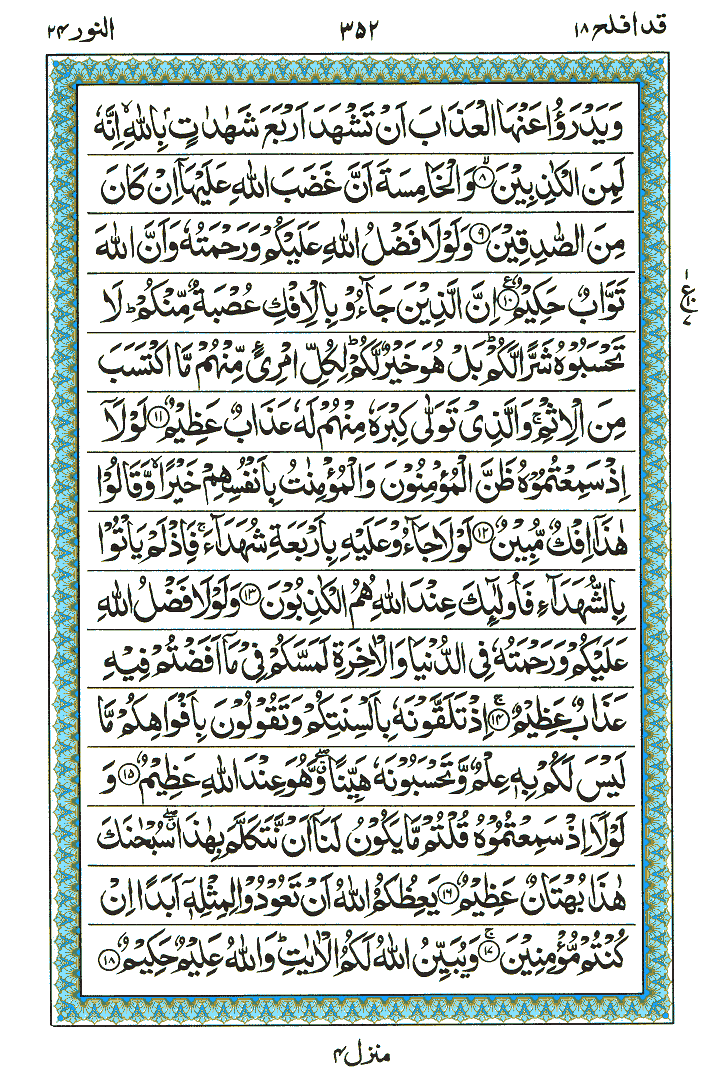 قد افلح ۱۸
۳۵۲
النور ۲۴
وَيَدْرَؤُا عَنْهَا الْعَذَابَ اَنْ تَشْهَدَ اَرْبَعَ شَهٰدٰتٍۭ بِاللّٰهِ ۙ اِنَّهٗ
لَمِنَ الْكٰذِبِيْنَ ۙ‏﴿۸﴾ وَالْخَامِسَةَ اَنَّ غَضَبَ اللّٰهِ عَلَيْهَاۤ اِنْ كَانَ
مِنَ الصّٰدِقِيْنَ ﴿۹﴾ وَلَوْلَا فَضْلُ اللّٰهِ عَلَيْكُمْ وَرَحْمَتُهٗ وَاَنَّ اللّٰهَ
تَوَّابٌ حَكِيْمٌ ﴿۱۰﴾ ع اِنَّ الَّذِيْنَ جَآءُوْ بِالْاِفْكِ عُصْبَةٌ مِّنْكُمْ ؕ لَا
تَحْسَبُوْهُ شَرًّا لَّكُمْ ؕ بَلْ هُوَ خَيْرٌ لَّكُمْ ؕ لِكُلِّ امْرِئٍ مِّنْهُمْ مَّا اكْتَسَبَ
مِنَ الْاِثْمِ ۚ وَالَّذِيْ تَوَلّٰى كِبْرَهٗ مِنْهُمْ لَهٗ عَذَابٌ عَظِيْمٌ ﴿۱۱﴾ لَوْلَاۤ
اِذْ سَمِعْتُمُوْهُ ظَنَّ الْمُؤْمِنُوْنَ وَالْمُؤْمِنٰتُ بِاَنْفُسِهِمْ خَيْرًا ۙ وَّقَالُوْا
هٰذَاۤ اِفْكٌ مُّبِيْنٌ ﴿۱۲﴾ لَوْلَا جَآءُوْ عَلَيْهِ بِاَرْبَعَةِ شُهَدَآءَ ۚ فَاِذْ لَمْ يَاْتُوْا
بِالشُّهَدَآءِ فَاُولٰٓئِكَ عِنْدَ اللّٰهِ هُمُ الْكٰذِبُوْنَ ﴿۱۳﴾ وَلَوْلَا فَضْلُ اللّٰهِ
عَلَيْكُمْ وَرَحْمَتُهٗ فِي الدُّنْيَا وَالْاٰخِرَةِ لَمَسَّكُمْ فِيْ مَاۤ اَفَضْتُمْ فِيْهِ
عَذَابٌ عَظِيْمٌ ۚ ﴿۱۴﴾ اِذْ تَلَقَّوْنَهٗ بِاَلْسِنَتِكُمْ وَتَقُوْلُوْنَ بِاَفْوَاهِكُمْ مَّا
لَيْسَ لَكُمْ بِهٖ عِلْمٌ وَّتَحْسَبُوْنَهٗ هَيِّنًا ۖ وَّهُوَ عِنْدَ اللّٰهِ عَظِيْمٌ ﴿۱۵﴾ وَ
لَوْلَاۤ اِذْ سَمِعْتُمُوْهُ قُلْتُمْ مَّا يَكُوْنُ لَنَاۤ اَنْ نَّتَكَلَّمَ بِهٰذَا ۖ سُبْحٰنَكَ
هٰذَا بُهْتَانٌ عَظِيْمٌ ﴿۱۶﴾ يَعِظُكُمُ اللّٰهُ اَنْ تَعُوْدُوْا لِمِثْلِهٖۤ اَبَدًا اِنْ
كُنْتُمْ مُّؤْمِنِيْنَ ۚ ﴿۱۷﴾ وَيُبَيِّنُ اللّٰهُ لَكُمُ الْاٰيٰتِ ؕ وَاللّٰهُ عَلِيْمٌ حَكِيْمٌ ﴿۱۸﴾
۱
ع
۷
منزل ۴